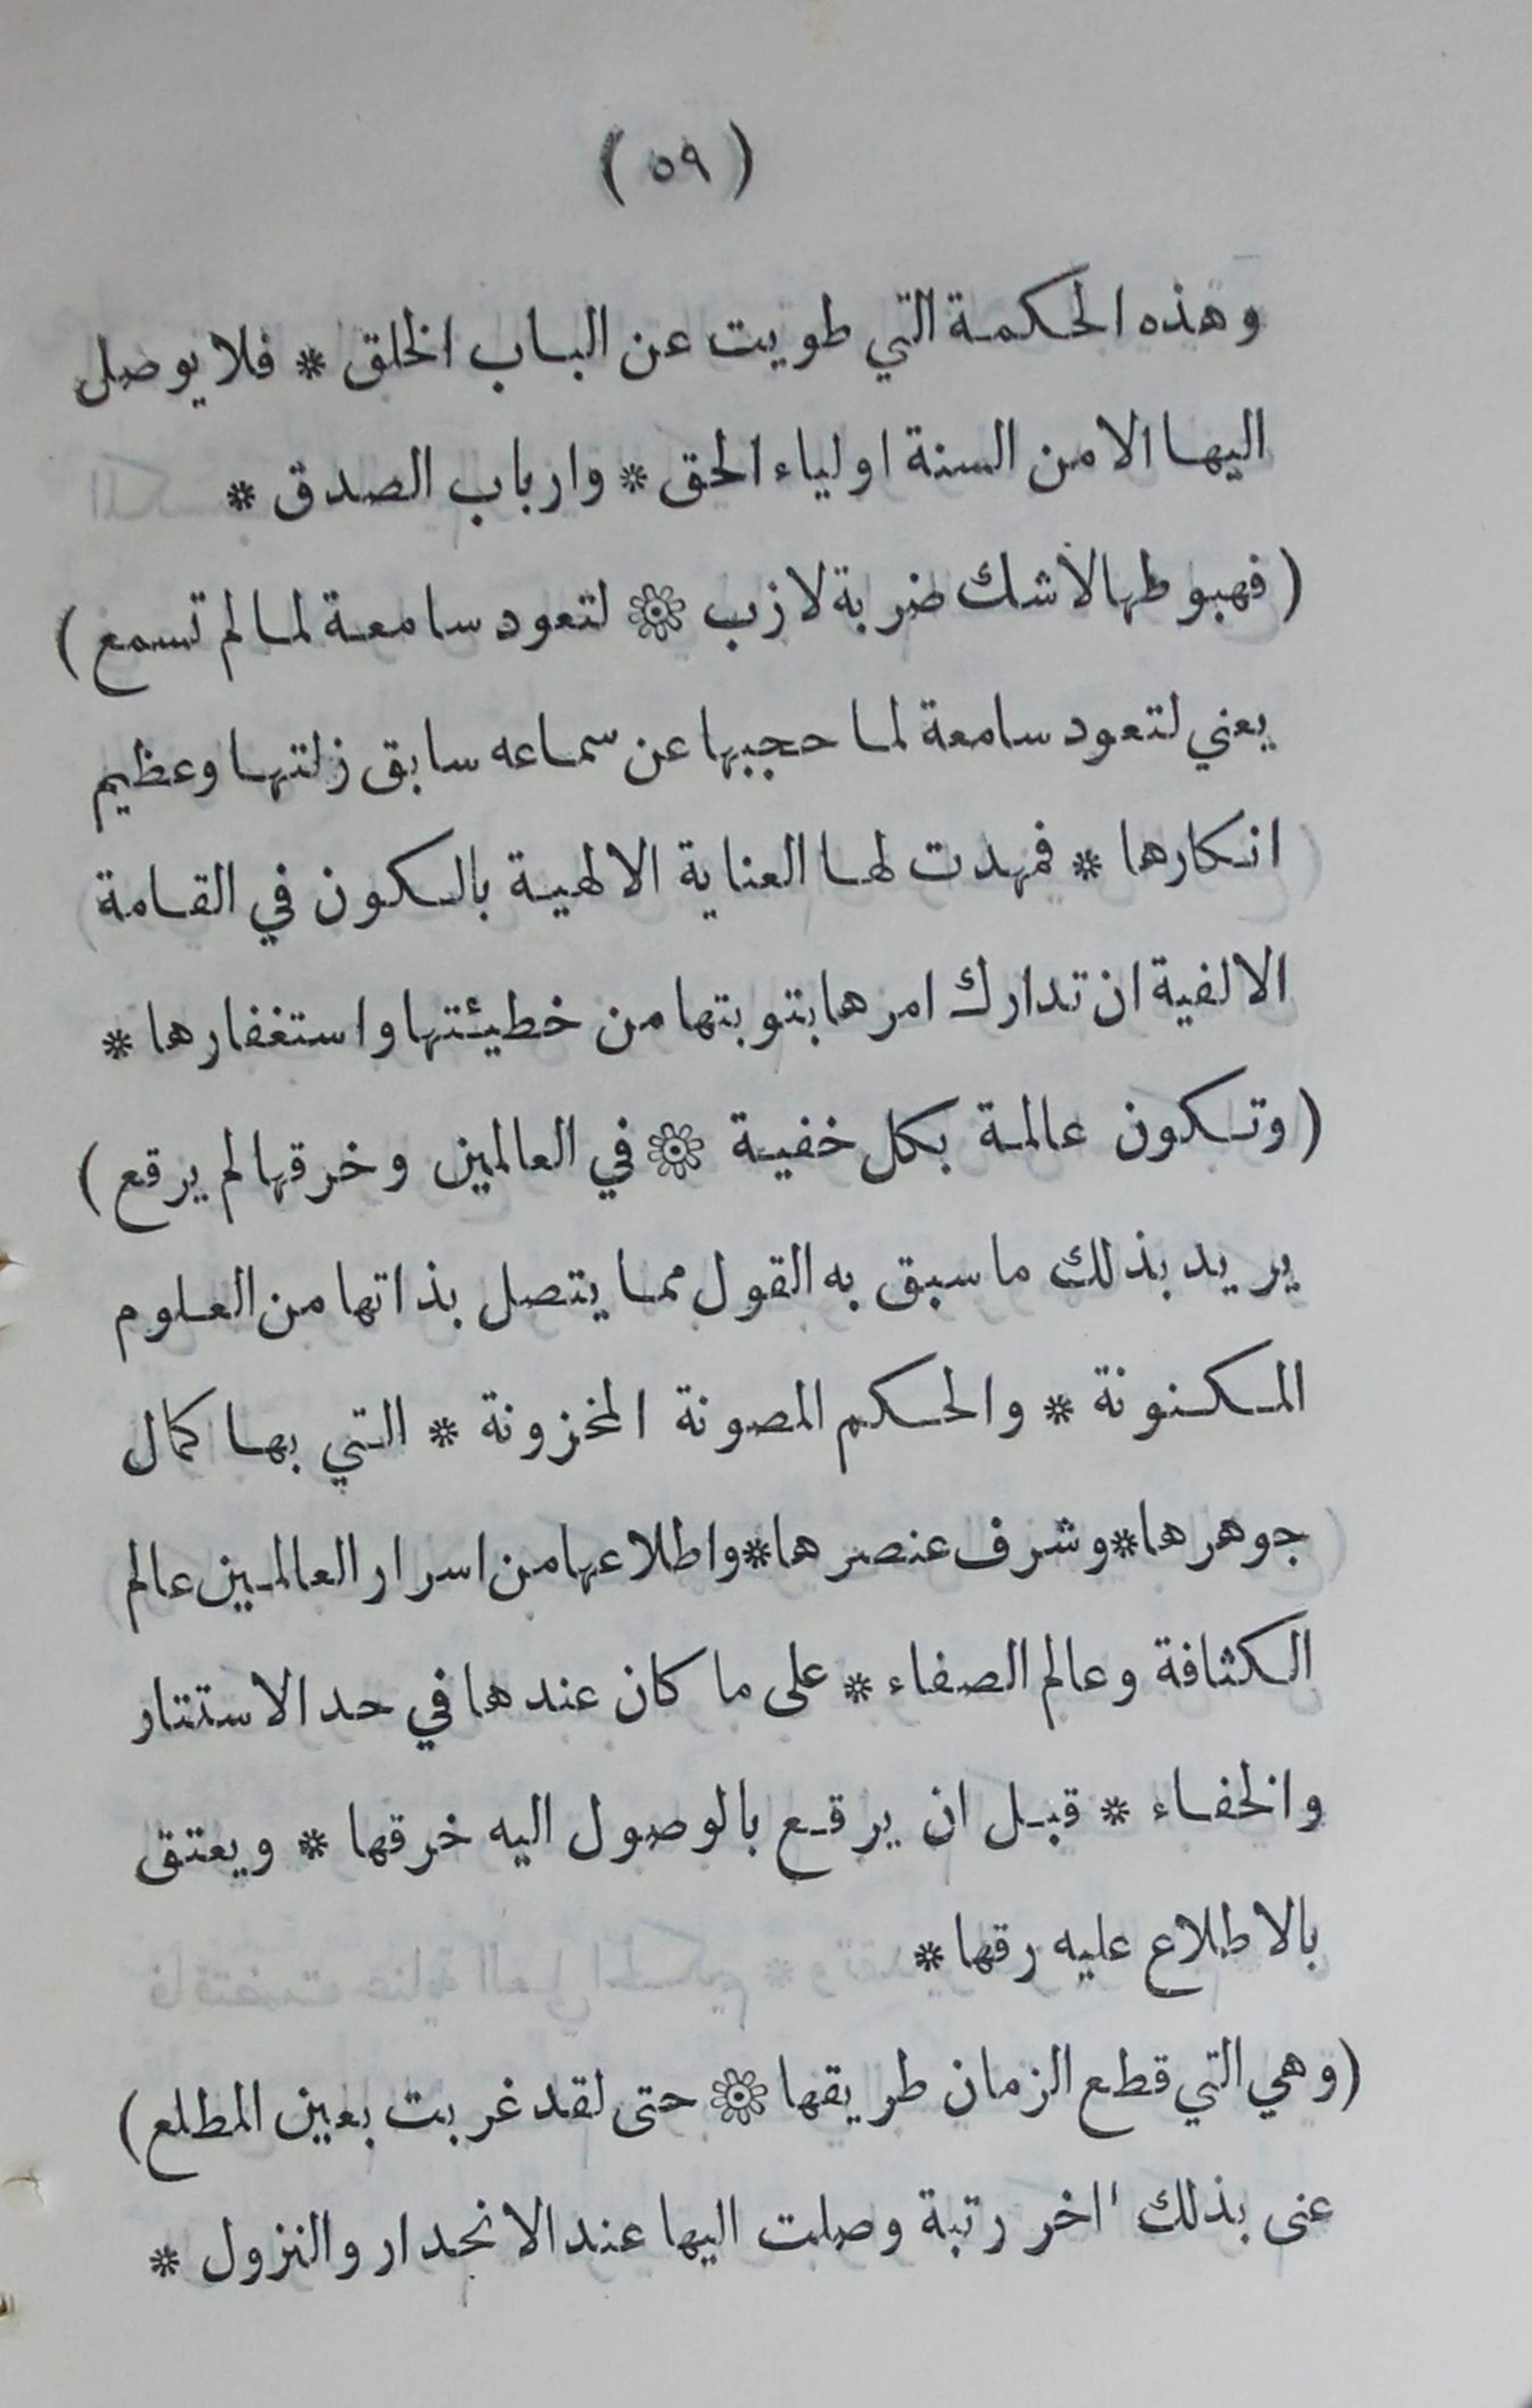 (٥٩)
وهذه الحكمة التي طويت عن الباب الخلق * فلا يوصل
اليها الا من السنة اولياء الحق * وارباب الصدق *
(فهبوطها لا شك ضربة لازب ۞ لتعود سامعة لما لم تسمع)
يعني لتعود سامعة لما حجبها عن سماعه سابق زلتها وعظيم
انكارها * فمهدت لها العناية الالهية بالكون في القامة
الالفية ان تدارك امرها بتوبتها من خطيئتها واستغفارها *
(وتكون عالمة بكل خفية ۞ في العالمين وخرقها لم يرقع)
يريد بذلك ما سبق به القول مما يتصل بذاتها من العلوم
المكنونة * والحكم المصونة المخزونة * التي بها كمال
جوهرها * وشرف عنصرها * واطلاعها من اسرار العالمين عالم
الكثافة وعالم الصفاء * على ما كان عندها في حد الاستتار
والخفاء * قبل ان يرقع بالوصول اليه خرقها * ويعتق
بالاطلاع عليه رقها *
(وهي التي قطع الزمان طريقها ۞ حتى لقد غربت بعين المطلع)
عنى بذلك ااخر رتبة وصلت اليها عند الانحدار والنزول *